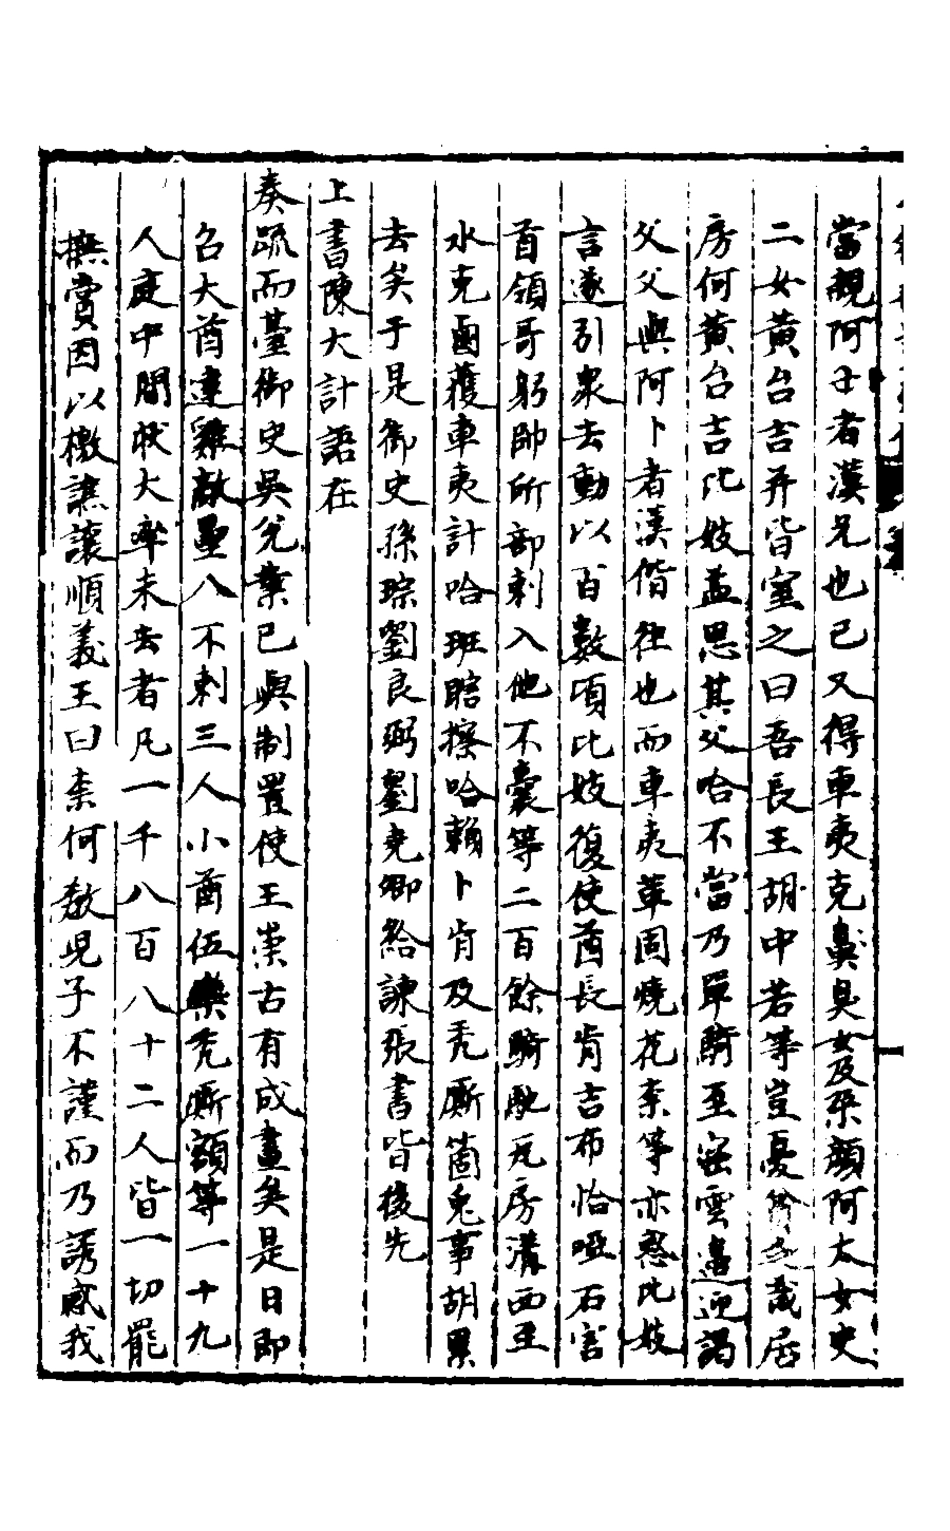 當親阿子者漢兄也已又得車夷克臭臭女及朶顏阿太女史
二女黃台吉并皆室之曰吾長王胡中若等豈憂哉居
房何黃台吉比妓益思其父哈不當乃單騎至密雲邊迎謁
父父與阿卜者漢偕往也而車夷革固燒花柰等亦惑比妓
言遂引衆去動以百數頃比妓復使酋長肯吉布恰啞石害
首領哥躬帥所部刺入他不囊等二百餘騎馳瓦房溝西至
水克國獲車夷計哈班瞎擦哈賴卜肯及禿厮箇兎事胡累
去矣于是御史孫琮劉良弼劉堯卿給諫張書皆後先
上書陳大計語在
奏疏而臺御史吳兌業已與制置使王崇古有成畫矣是日即
召大酋建雞敵壘八不剌三人小酋伍欒禿厮額等一十九
人庭中閒狀大率未去者凡一千八百八十二人皆一切罷
撫賞因以檄譙讓順義王曰柰何敖兒子不謹而乃誘惑我